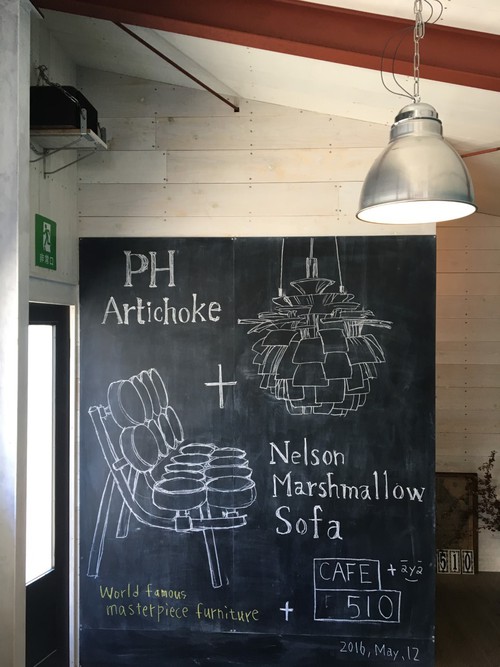 非常口
PH
Artichoke
+
Nelson
Marshmallow
Sofa
World famous
masterpiece furniture
+
CAFE
510
+ āyā
510
2016, May, 12